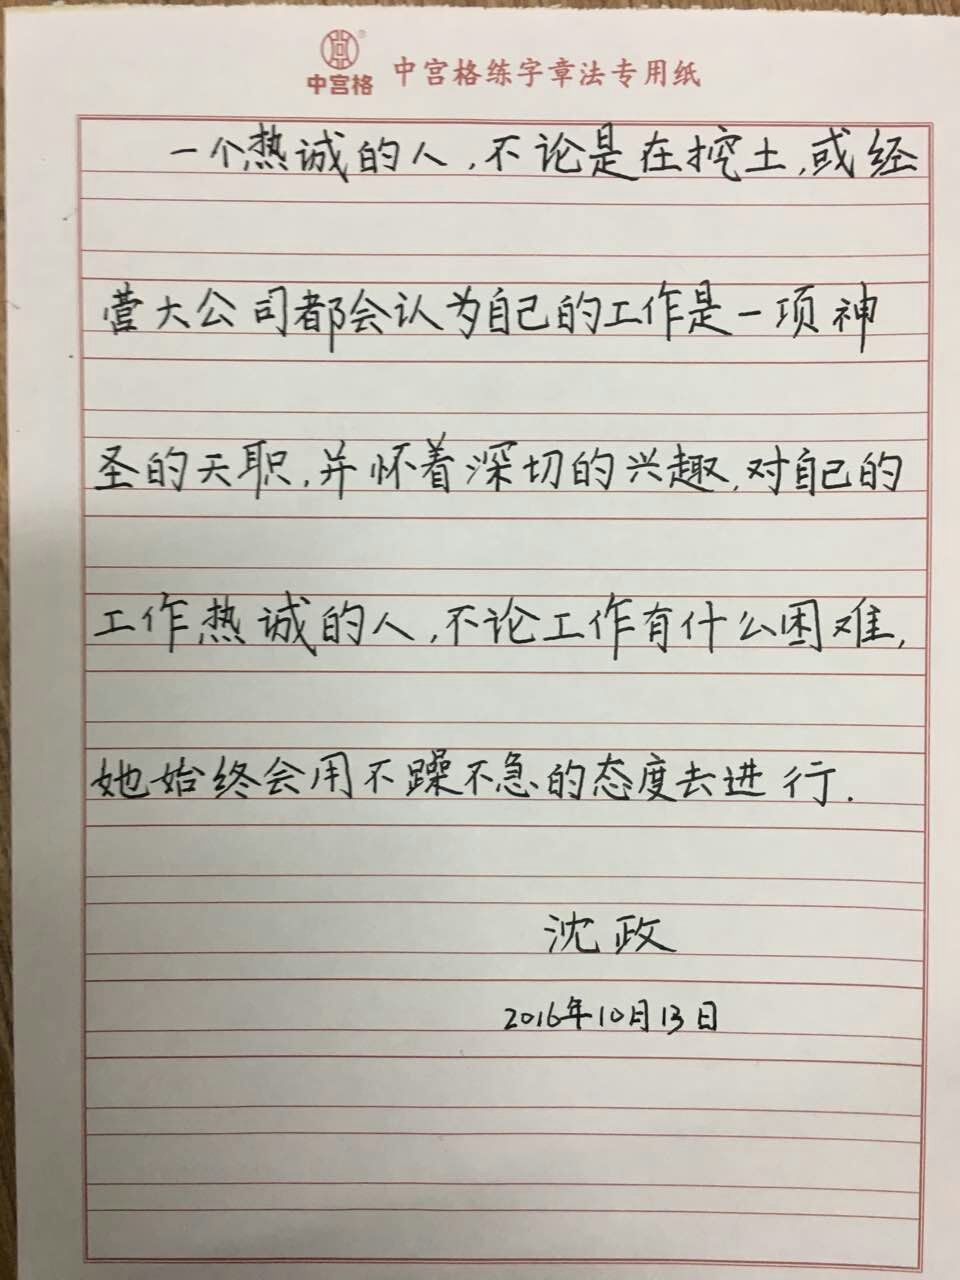 中宫格® 中宫格练字章法专用纸
一个热诚的人,不论是在挖土,或经
营大公司都会认为自己的工作是一项神
圣的天职,并怀着深切的兴趣,对自己的
工作热诚的人,不论工作有什么困难,
她始终会用不躁不急的态度去进行.
沈政
2016年10月13日